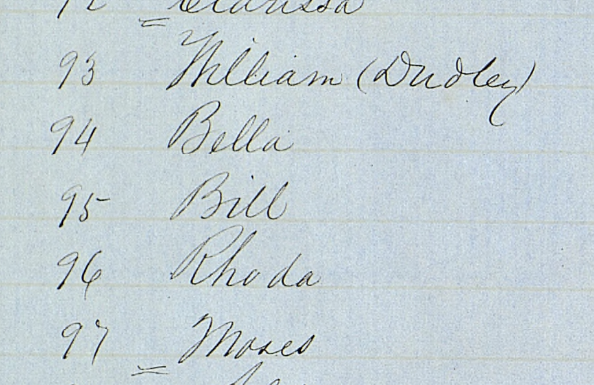 92 Clarissa
93 William (Dudley)
94 Bella
95 Bill
96 Rhoda
97 Moses